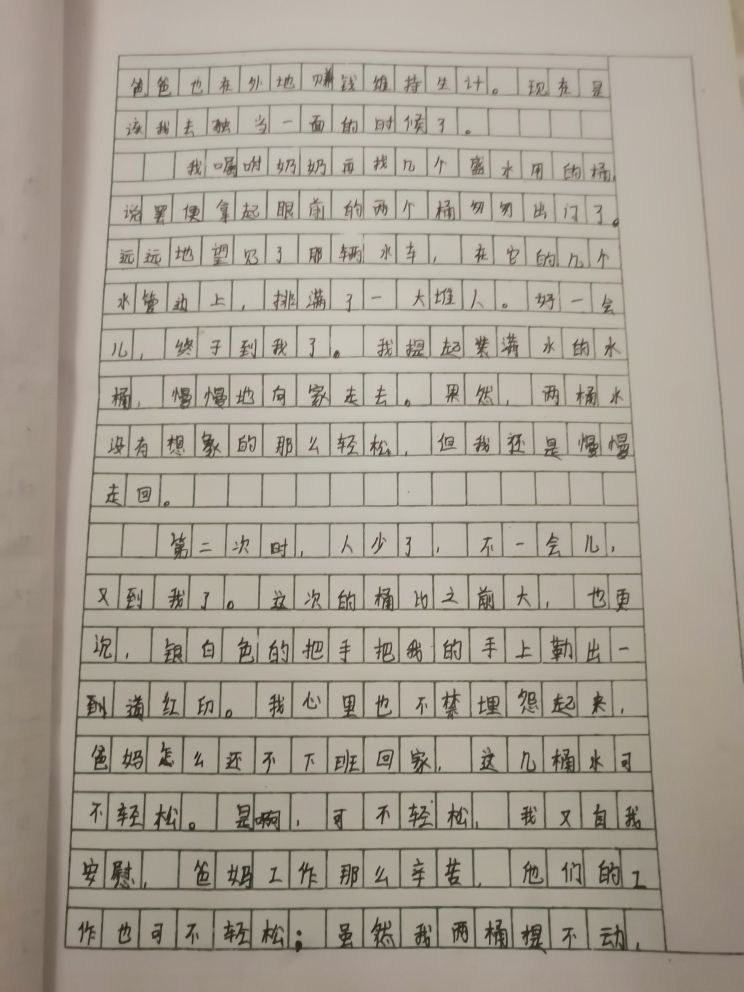 爸爸也在外地赚钱维持生计。现在是
该我去独当一面的时候了。
我嘱咐奶奶再找几个盛水用的桶,
说罢便拿起眼前的两个桶匆匆出门了。
远远地望见了那辆水车,在它的几个
水管边上,排满了一大堆人。好一会
儿,终于到我了。我提起装满水的水
桶,慢慢地向家走去。果然,两桶水
没有想象的那么轻松,但我还是慢慢
走回。
第二次时,人少了,不一会儿,
又到我了。这次的桶比之前大,也更
沉,银白色的把手把我的手上勒出一
到道红印。我心里也不禁埋怨起来,
爸妈怎么还不下班回家,这几桶水可
不轻松。是啊,可不轻松,我又自我
安慰,爸妈工作那么辛苦,他们的工
作也可不轻松;虽然我两桶提不动,